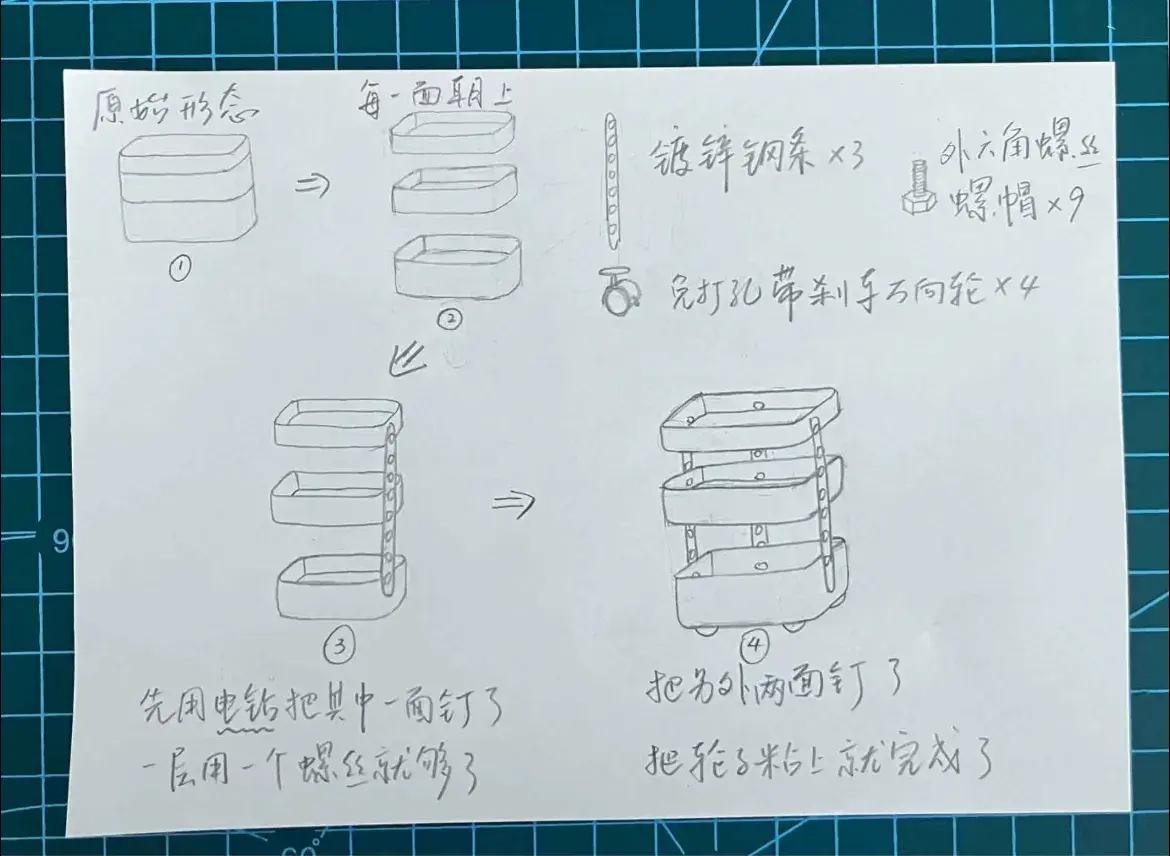 原始形态
每一面朝上
①
②
镀锌钢条×3
外六角螺丝
螺帽×9
免打孔带刹车万向轮×4
③
先用电钻把其中一面钉了
一层用一个螺丝就够了
④
把另外两面钉了
把轮子粘上就完成了
9
60°